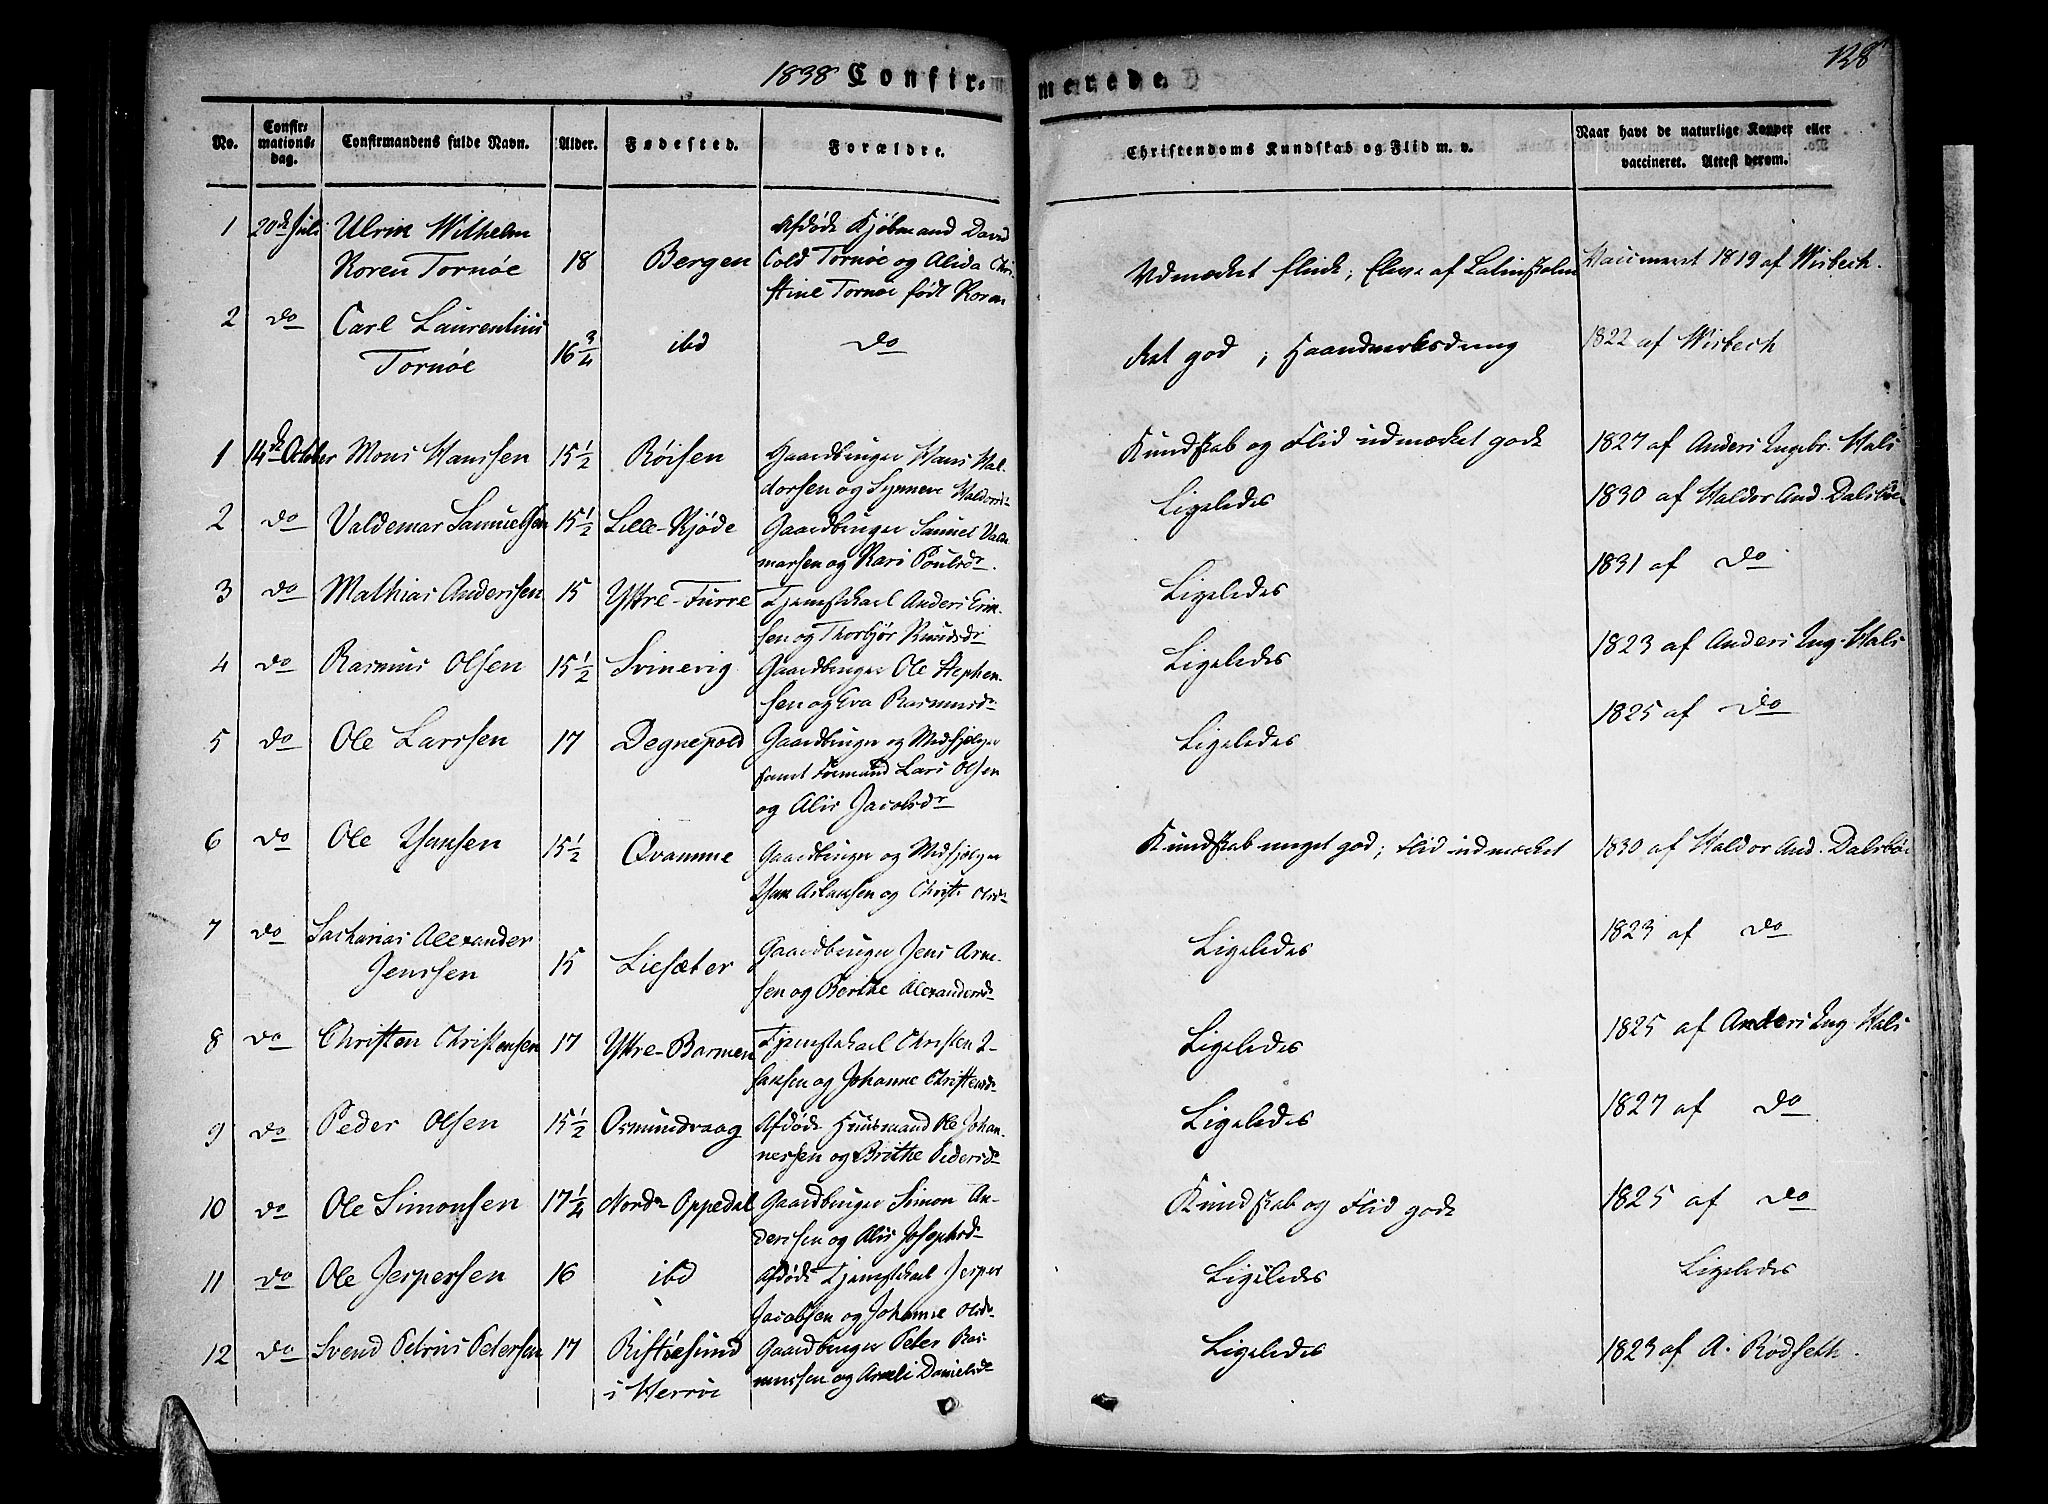 1838 Confir-
merede
128
No.
Confir-
mations-
dag.
Confirmandens fulde Navn.
Alder.
Fødested.
Forældre.
Christendoms Kundskab og Flid m. v.
Naar havt de naturlige Kopper eller
vaccineret. Attest derom.
1 20de Juli Ulrik Wilhelm
Koren Tornøe 18 Bergen
Afdøde Kjøbmand David
Cold Tornøe og Alida Chri-
stine Tornøe født Koren
Udmærket flink; Elev af Latinskolen
Vaccineret 1819 af Wisbech.
2 do Carl Laurentius
Tornøe 16 3/4 ibd do
Ret god; Haandværksdreng
1822 af Wisbech
1 14de October Mons Hanssen 15 1/2 Røisen
Gaardbruger Hans Hal-
dorsen og Synneve Haldorsdr
Kundskab og Flid udmærket godt
1827 af Anders Ingebr. Hals
2 do Valdemar Samuelsen 15 1/2 Lille-Kjøde
Gaardbruger Samuel Valde
marsen og Kari Poulsdr.
Ligeledes
1830 af Haldor And. Dalsbøe
3 do Mathias Anderssen 15 Yttre-Furre
Tjenestekarl Anders
sen og Thorbjør Knudsdr
Ligeledes
1831 af do
4 do Rasmus Olsen 15 1/2 Svinevig
Gaardbruger Ole Stephen-
sen og Eva Rasmusdr
Ligeledes
1823 af Anders Ing. Hals
5 do Ole Larssen 17 Degnepold
Gaardbruger og Medhjelper
samt Formand Lars Olsen
og Alis Jacobsdr
Ligeledes
1825 af do
6 do Ole Hansen 15 1/2 Qvamme
Gaardbruger og Medhjelper
Hans Aslaksen og Christi Olsdr
Kundskab meget god; Flid udmærket
1830 af Haldor And. Dalsbøe
7 do Sacharias Alexander
Jenssen 15 Liesæter
Gaardbruger Jens Arne-
sen og Borithe Alexandersdr
Ligeledes
1823 af do
8 do Christen Christensen 17 Yttre-Barmen
Tjenestekarl Christen I-
saksen og Johanne Christensdr
Ligeledes
1825 af Anders Ing. Hals
9 do Peder Olsen 15 1/2 Osmundvaag
Afdøde Huusmand Ole Johan-
nessen og Brithe Pedersdr
Ligeledes
1827 af do
10 do Ole Simonsen 17 1/4 Nordr Oppedal
Gaardbruger Simon An-
derssen og Alis Josephsdr
Kundskab og Flid godt
1825 af do
11 do Ole Jespersen 16 ibd
Afdøde Tjenestekarl Jesper
Jacobsen og Johanne Olsdr
Ligeledes
Ligeledes
12 do Svend Petrus Petersen 17 Ristøesund
i Herrøe
Gaardbruger Peter Ras-
mussen og Anneli Danielsdr
Ligeledes
1823 af A. Rødseth.